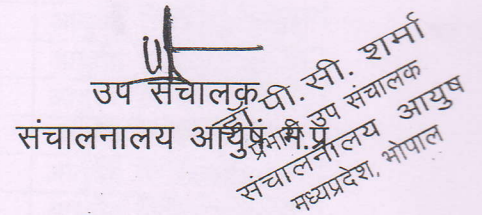 उप संचालक
संचालनालय आयुष म.प्र.
डॉ. पी. सी. शर्मा
प्रभारी उप संचालक
संचालनालय आयुष
मध्यप्रदेश, भोपाल